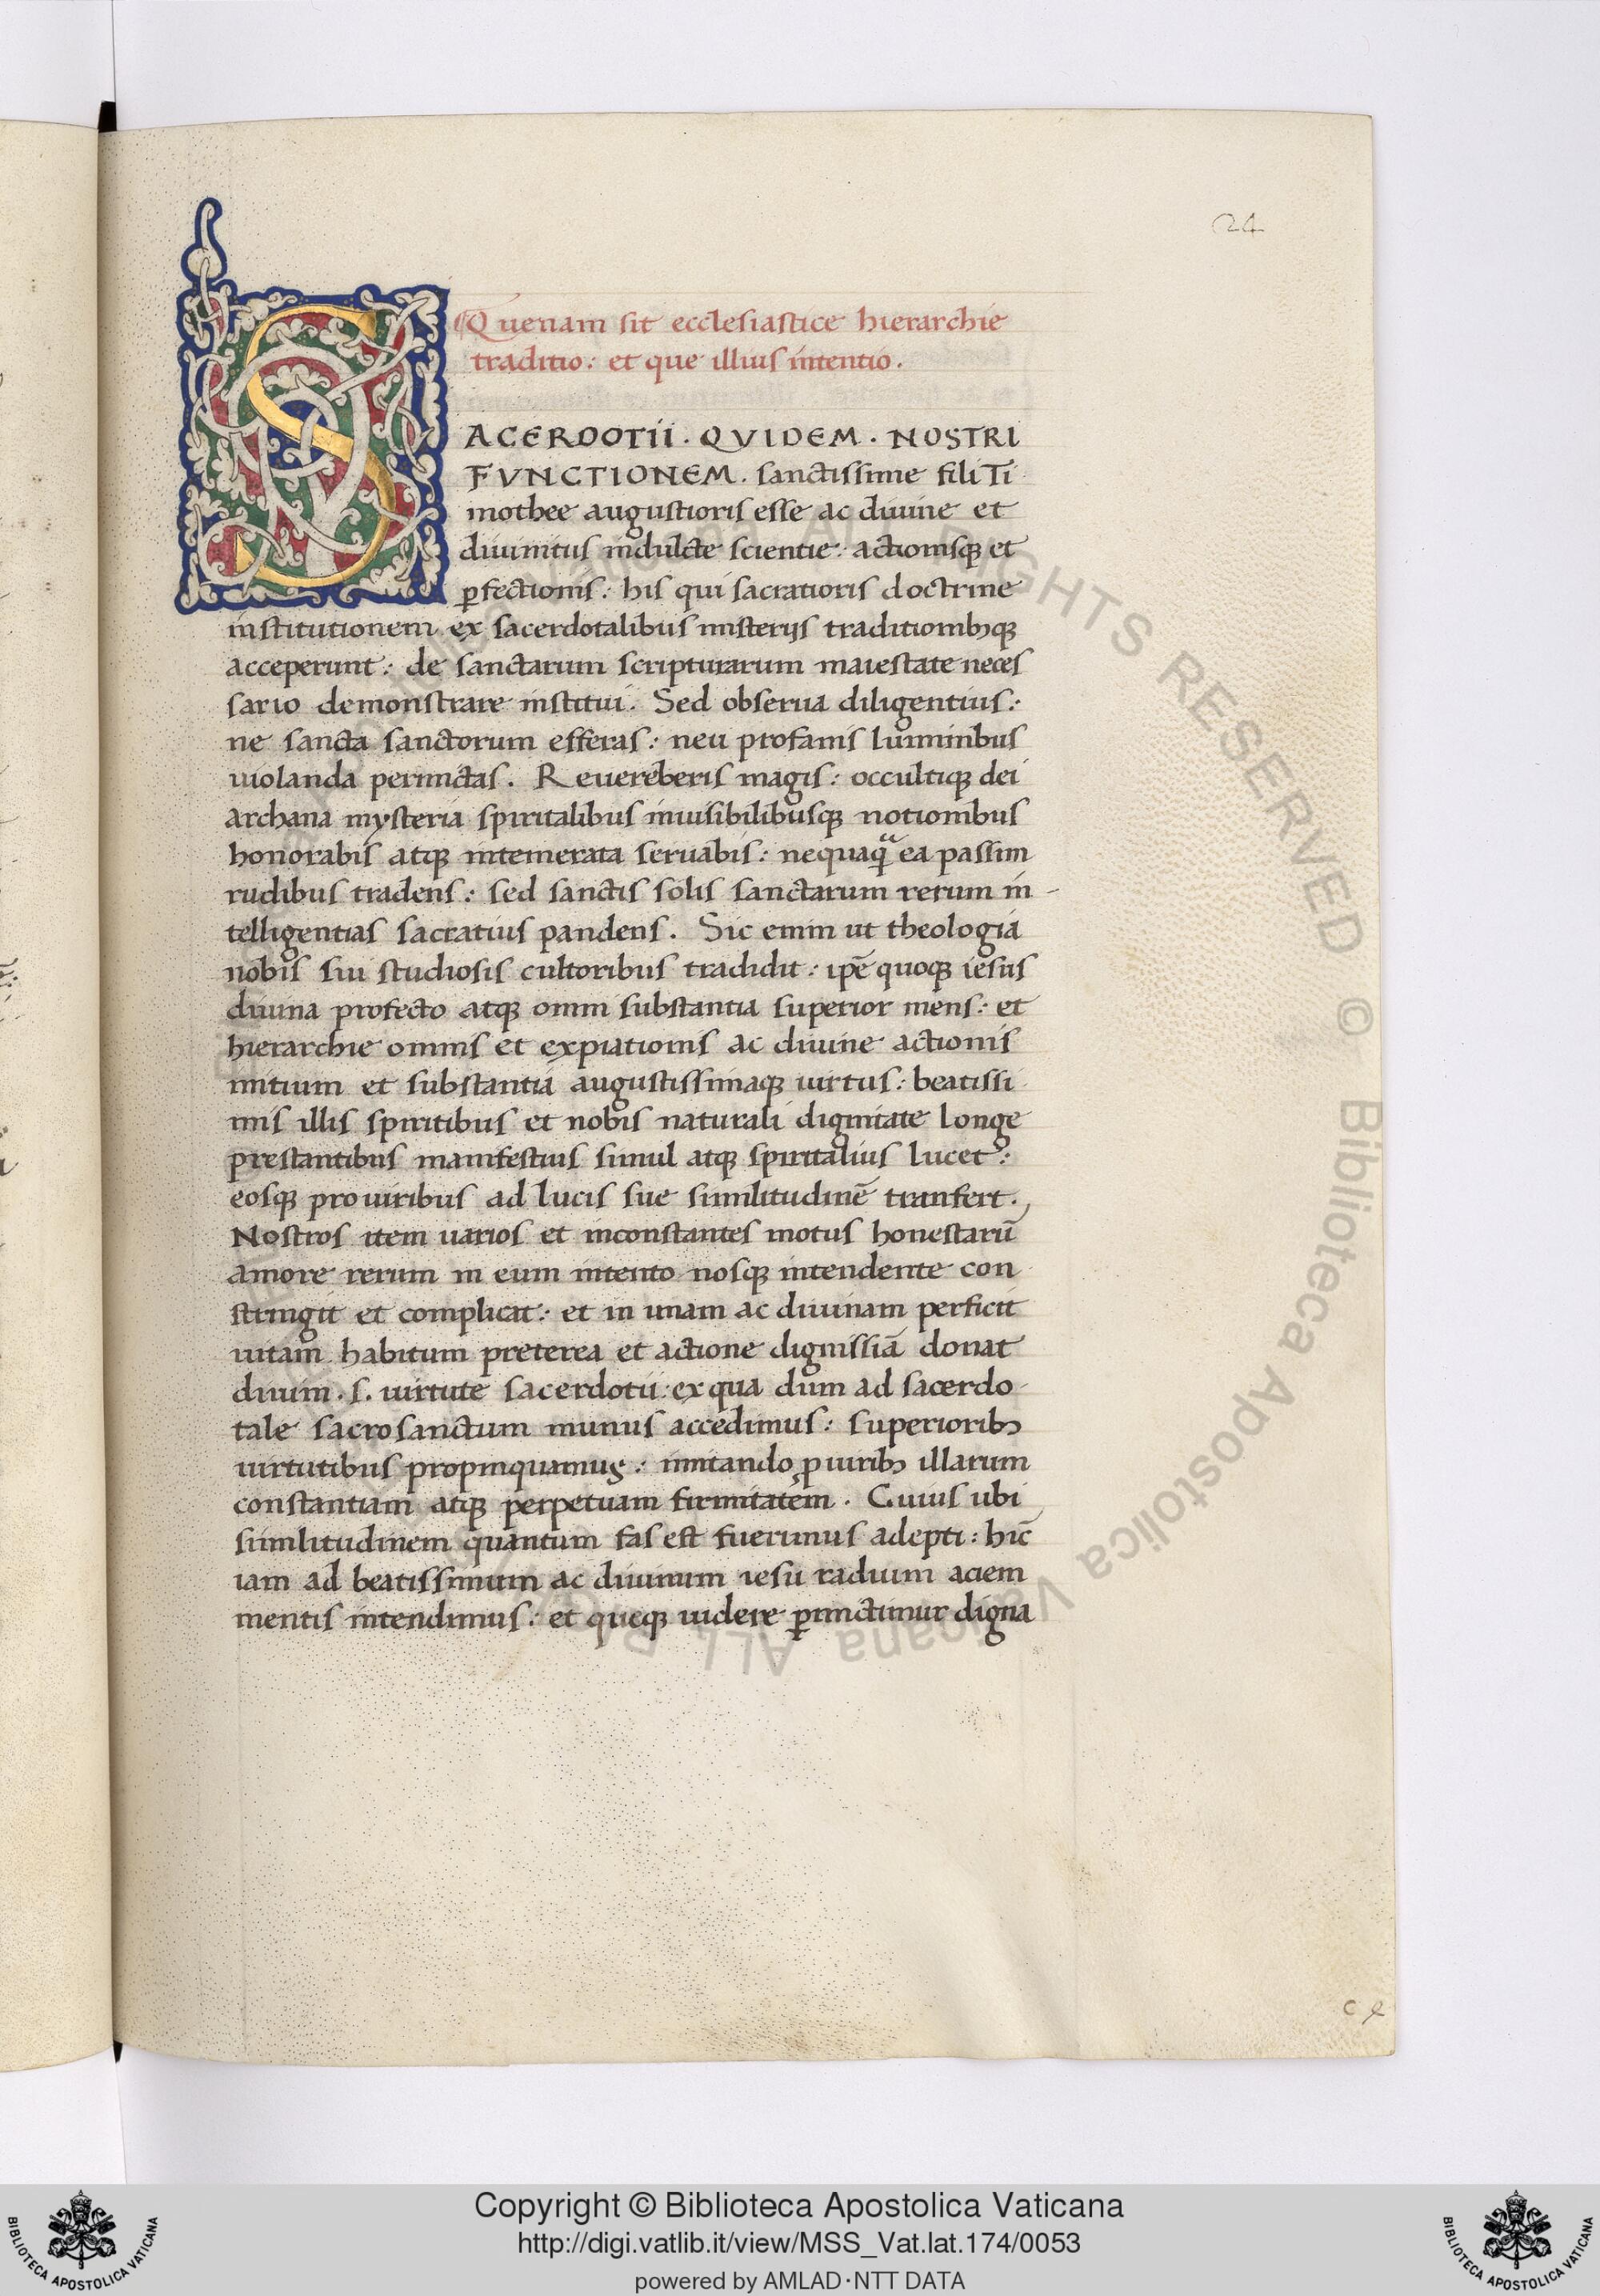 24
Quenam sit ecclesiastice hierarchie
traditio: et que illius intentio.
SACERDOTII · QVIDEM · NOSTRI
FVNCTIONEM. sanctissime fili Ti
mothee augustioris esse ac diuine et
diuinitus indulcte scientie: actionisq; et
ꝑfectionis: his qui sacratioris doctrine
institutionem ex sacerdotalibus misterijs traditionibꝫq;
acceperunt: de sanctarum scripturarum maiestate neces
sario demonstrare institui. Sed obserua diligentius:
ne sancta sanctorum efferas: neu profanis luminibus
uiolanda permictas. Revereberis magis: occultiq; dei
archana mysteria spiritalibus inuisibilibusq; notionibus
honorabis atq; intemerata seruabis: nequaqᷓ ea passim
rudibus tradens: sed sanctis solis sanctarum rerum in-
telligentias sacratius pandens. Sic enim ut theologia
nobis sui studiosis cultoribus tradidit: ipē quoq; iesus
diuina profecto atq; omni substantia superior mens: et
hierarchie omnis et expiationis ac diuine actionis
initium et substantia augustissimaq; uirtus: beatissi
mis illis spiritibus et nobis naturali dignitate longe
prestantibus manifestius simul atq; spiritalius lucet:
eosq; pro uiribus ad lucis sue similitudinē tranfert.
Nostros item uarios et inconstantes motus honestarū
amore rerum in eum intento nosq; intendente con
stringit et complicat: et in unam ac diuinam perficit
uitam habitum preterea et actione dignissiā donat
diuim. s. uirtute sacerdotii: ex qua dum ad sacerdo
tale sacrosanctum munus accedimus: superioribꝫ
uirtutibus propinquamus: imitando ꝓ uiribꝫ illarum
constantiam atq; perpetuam firmitatem. Cuius ubi
similitudinem quantum fas est fuerimus adepti: hic̄
iam ad beatissimum ac diuinum iesu radium aciem
mentis intendimus: et queq; uidere ꝑmictimur digna
c e
BIBLIOTECA APOSTOLICA VATICANA
Copyright © Biblioteca Apostolica Vaticana
http://digi.vatlib.it/view/MSS_Vat.lat.174/0053
powered by AMLAD·NTT DATA
BIBLIOTECA APOSTOLICA VATICANA